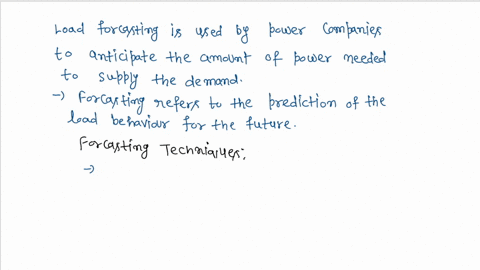 Load forcasting is used by power companies
to anticipate the amount of power needed
to supply the demand.
→ Forcasting refers to the prediction of the
load behaviour for the future.
Forcasting Techniques:
→